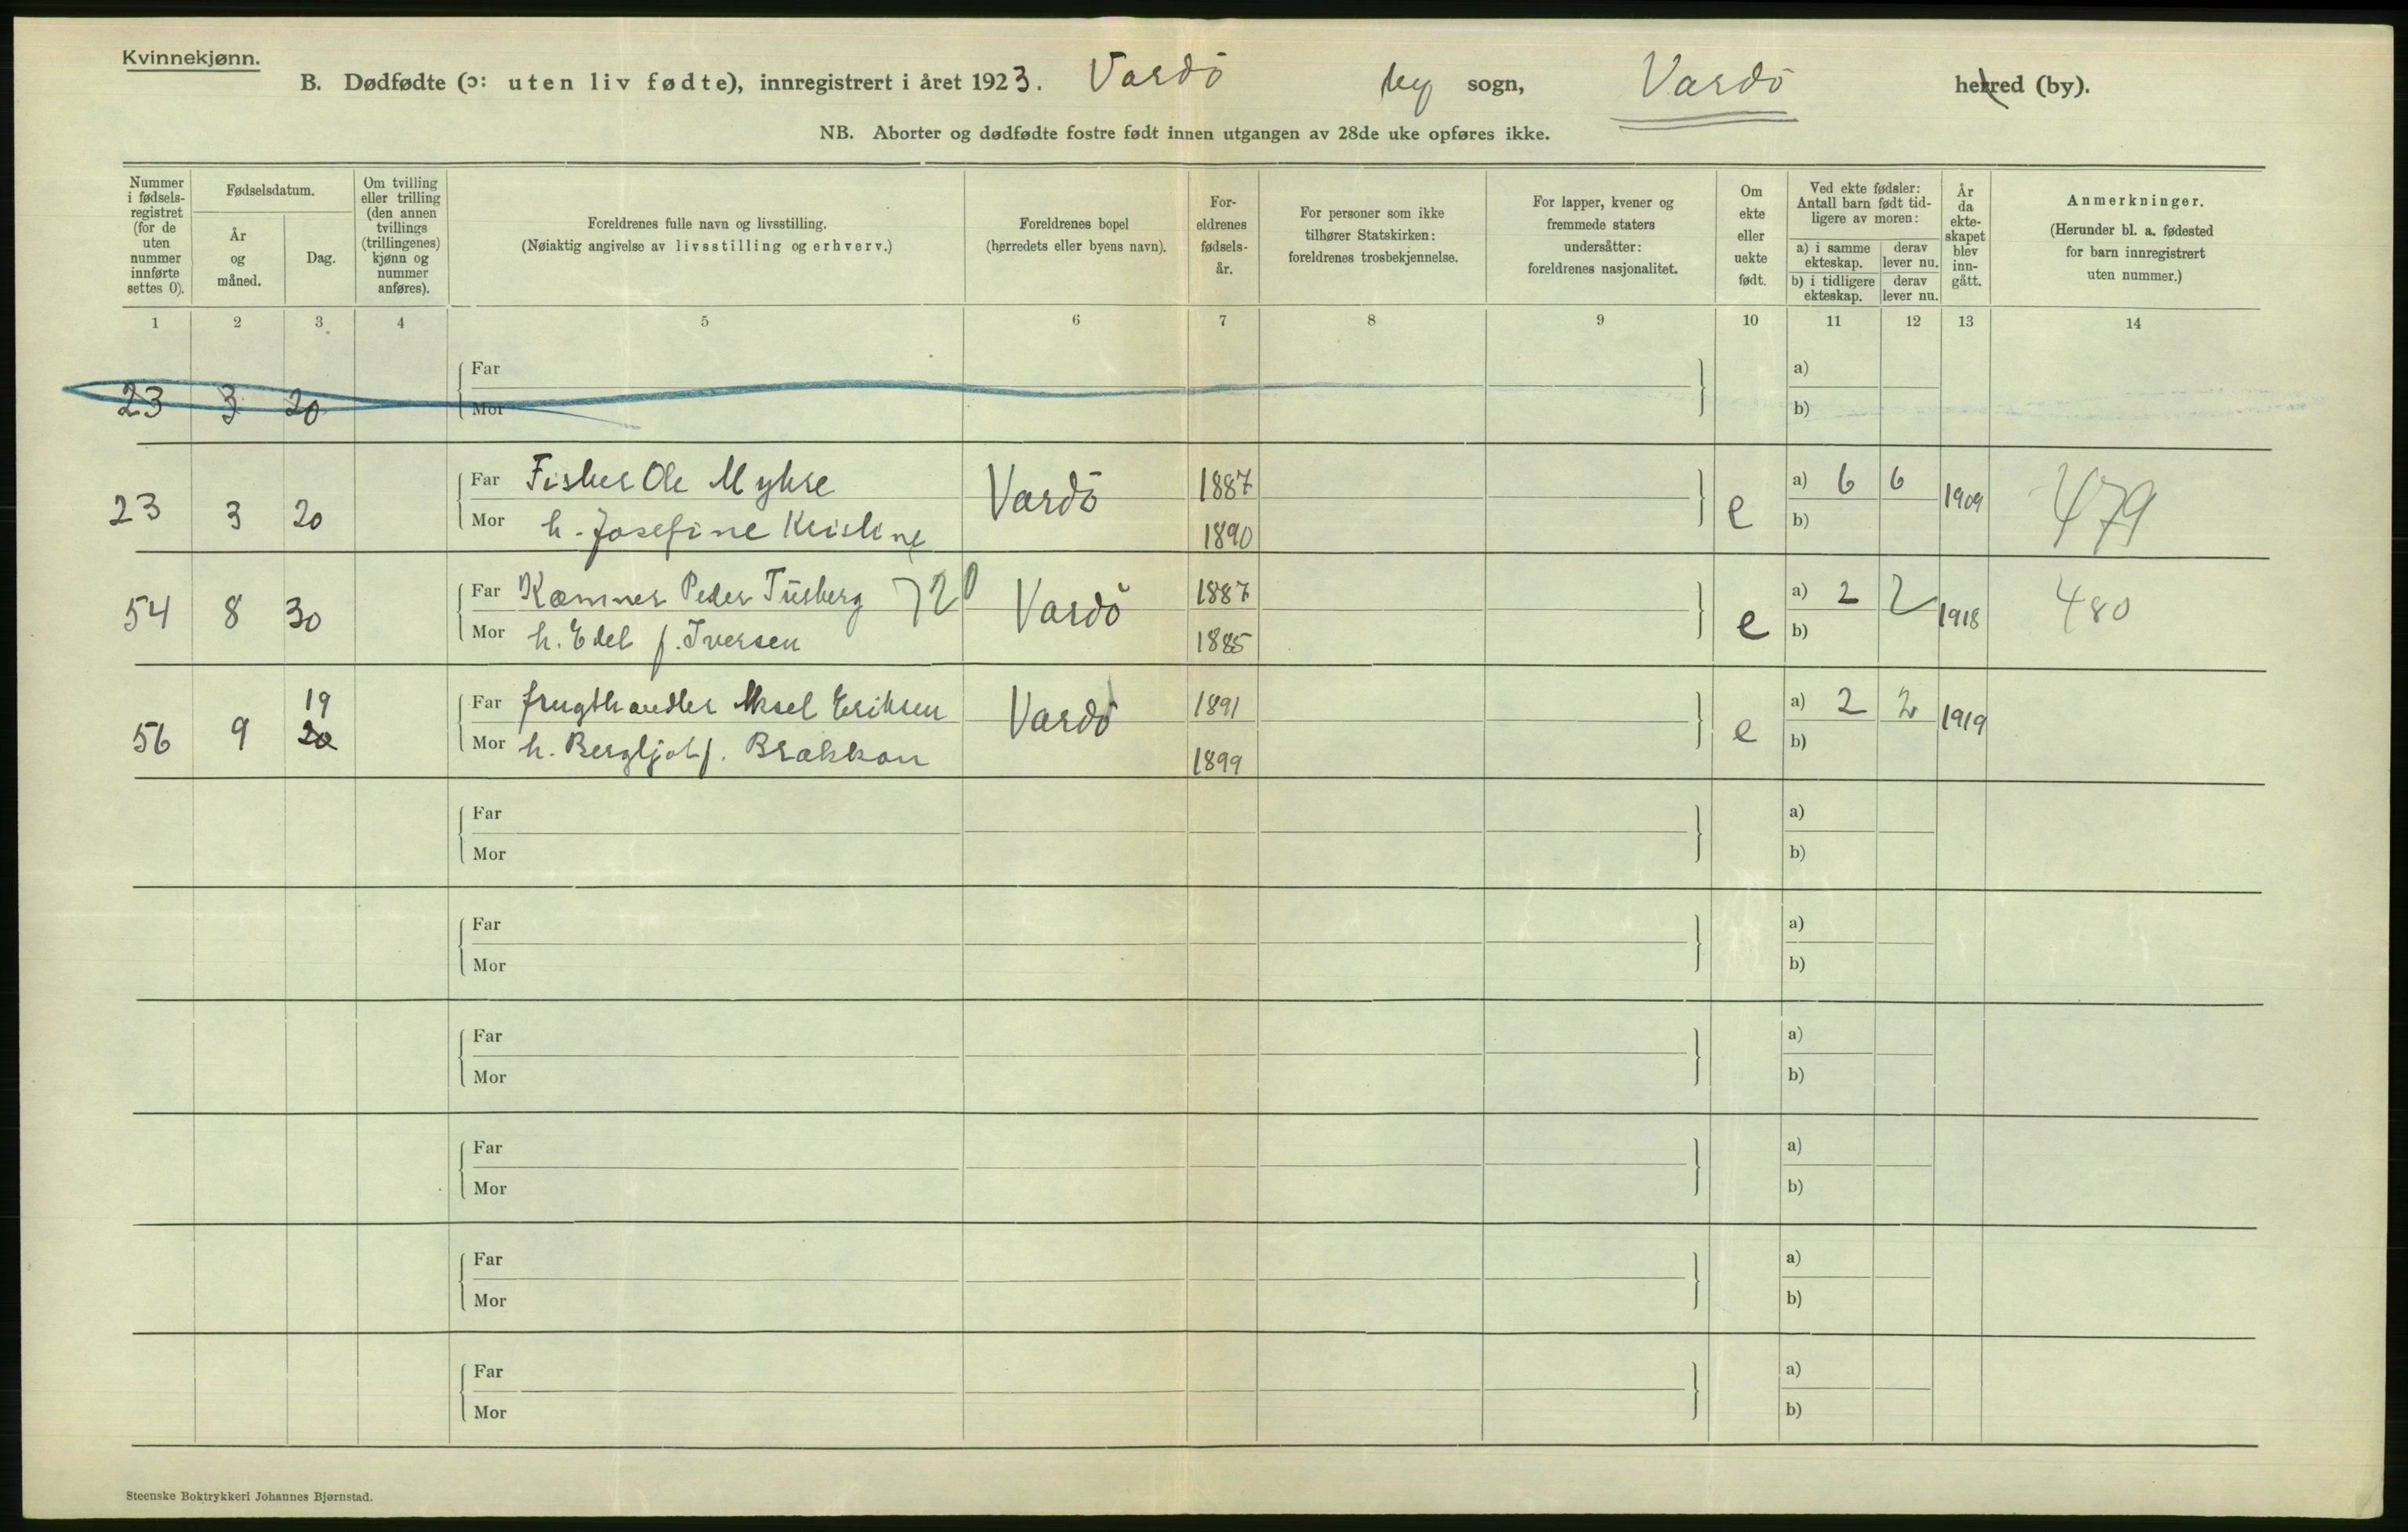 Kvinnekjønn.
B. Dødfødte (ɔ: uten liv fødte), innregistrert i året 1923. Vardö by sogn, Vardö herred (by).
NB. Aborter og dødfødte fostre født innen utgangen av 28de uke opføres ikke.
Nummer i fødselsregistret (for de uten nummer innførte settes 0).
Fødselsdatum.
År og måned.
Dag.
Om tvilling eller trilling (den annen tvillings (trillingenes) kjønn og nummer anføres).
Foreldrenes fulle navn og livsstilling.
(Nøiaktig angivelse av livsstilling og erhverv.)
Foreldrenes bopel
(herredets eller byens navn).
Foreldrenes fødselsår.
For personer som ikke tilhører Statskirken: foreldrenes trosbekjennelse.
For lapper, kvener og fremmede staters undersåtter: foreldrenes nasjonalitet.
Om ekte eller uekte født.
Ved ekte fødsler: Antall barn født tidligere av moren:
a) i samme ekteskap. derav lever nu.
b) i tidligere ekteskap. derav lever nu.
År da ekteskapet blev inngått.
Anmerkninger.
(Herunder bl. a. fødested for barn innregistrert uten nummer.)
1 2 3 4 5 6 7 8 9 10 11 12 13 14
Far a)
23 3 20 Mor b)
Far Fisker Ole Myhre Vardö 1887 e a) 6 6 1909 479
23 3 20 Mor h. Josefine Kristine 1890 b)
Far Kæmner Peder Tusberg 720 Vardö 1887 e a) 2 2 1918 480
54 8 30 Mor h. Edel f. Iversen 1885 b)
19 Far frugthandler Aksel Eriksen Vardö 1891 e a) 2 2 1919
56 9 20 Mor h. Bergljot f. Brækkan 1899 b)
Far a)
Mor b)
Far a)
Mor b)
Far a)
Mor b)
Far a)
Mor b)
Far a)
Mor b)
Far a)
Mor b)
Steenske Boktrykkeri Johannes Bjørnstad.